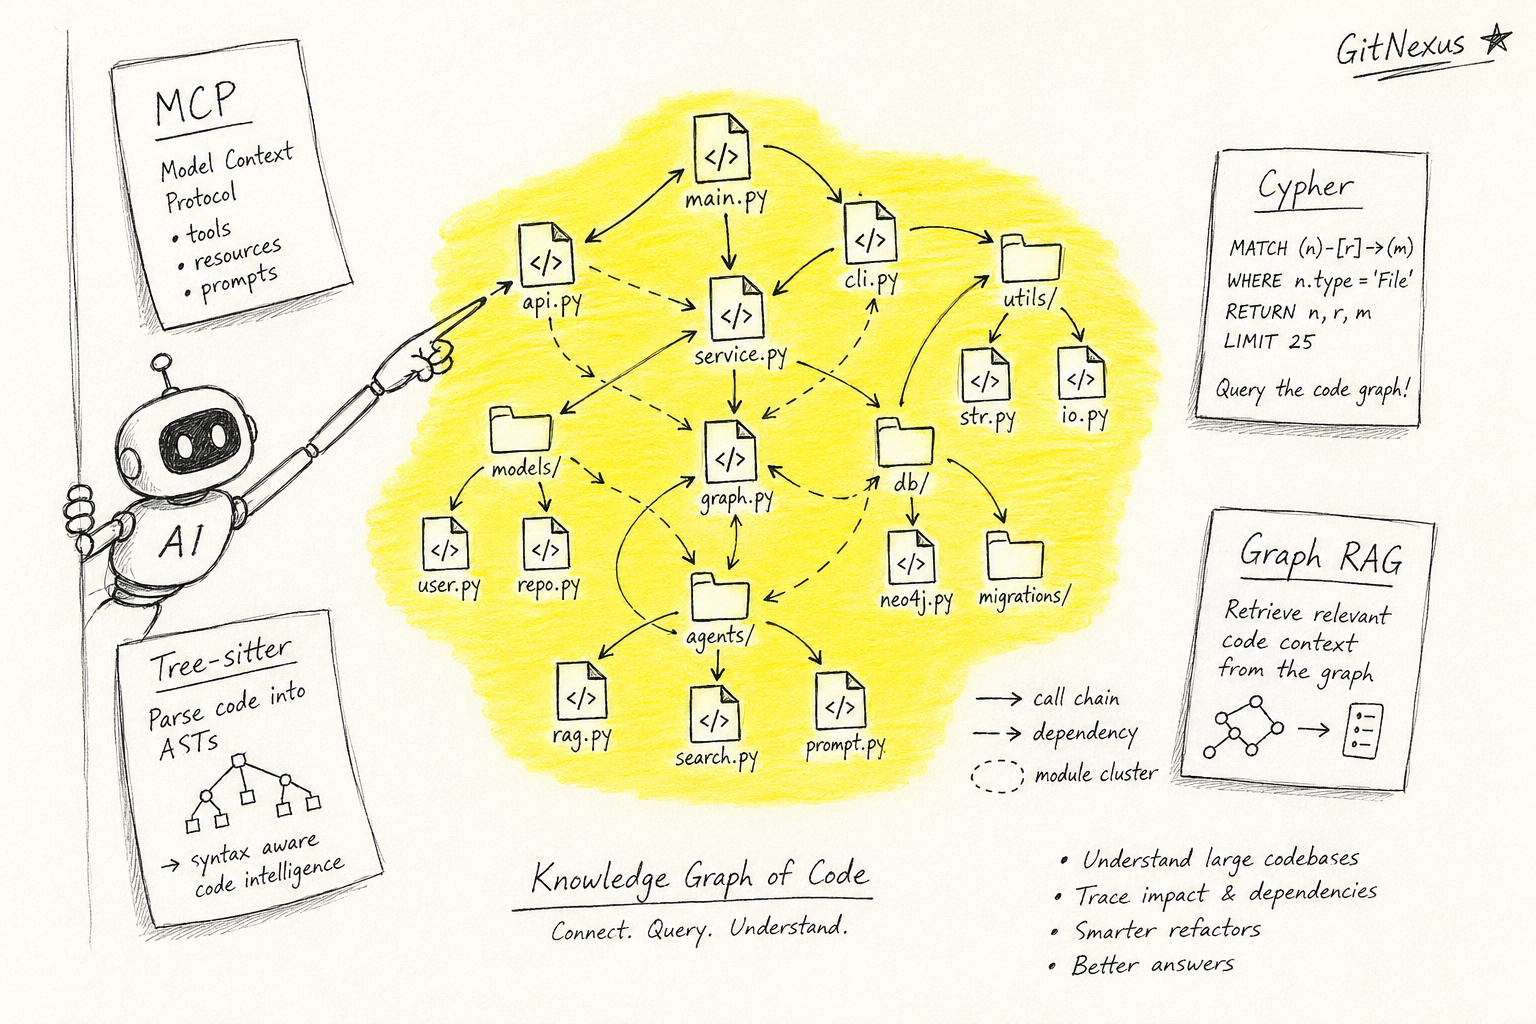 GitNexus
MCP
Model Context
Protocol
• tools
• resources
• prompts
AI
Tree-sitter
Parse code into
ASTs
→ syntax aware
code intelligence
main.py
api.py
cli.py
utils/
service.py
str.py
io.py
models/
graph.py
db/
user.py
repo.py
neo4j.py
migrations/
agents/
rag.py
search.py
prompt.py
</>
</>
</>
</>
</>
</>
</>
</>
</>
</>
</>
</>
</>
Cypher
MATCH (n)-[r]->(m)
WHERE n.type = 'File'
RETURN n, r, m
LIMIT 25
Query the code graph!
Graph RAG
Retrieve relevant
code context
from the graph
call chain
dependency
module cluster
Knowledge Graph of Code
Connect. Query. Understand.
• Understand large codebases
• Trace impact & dependencies
• Smarter refactors
• Better answers